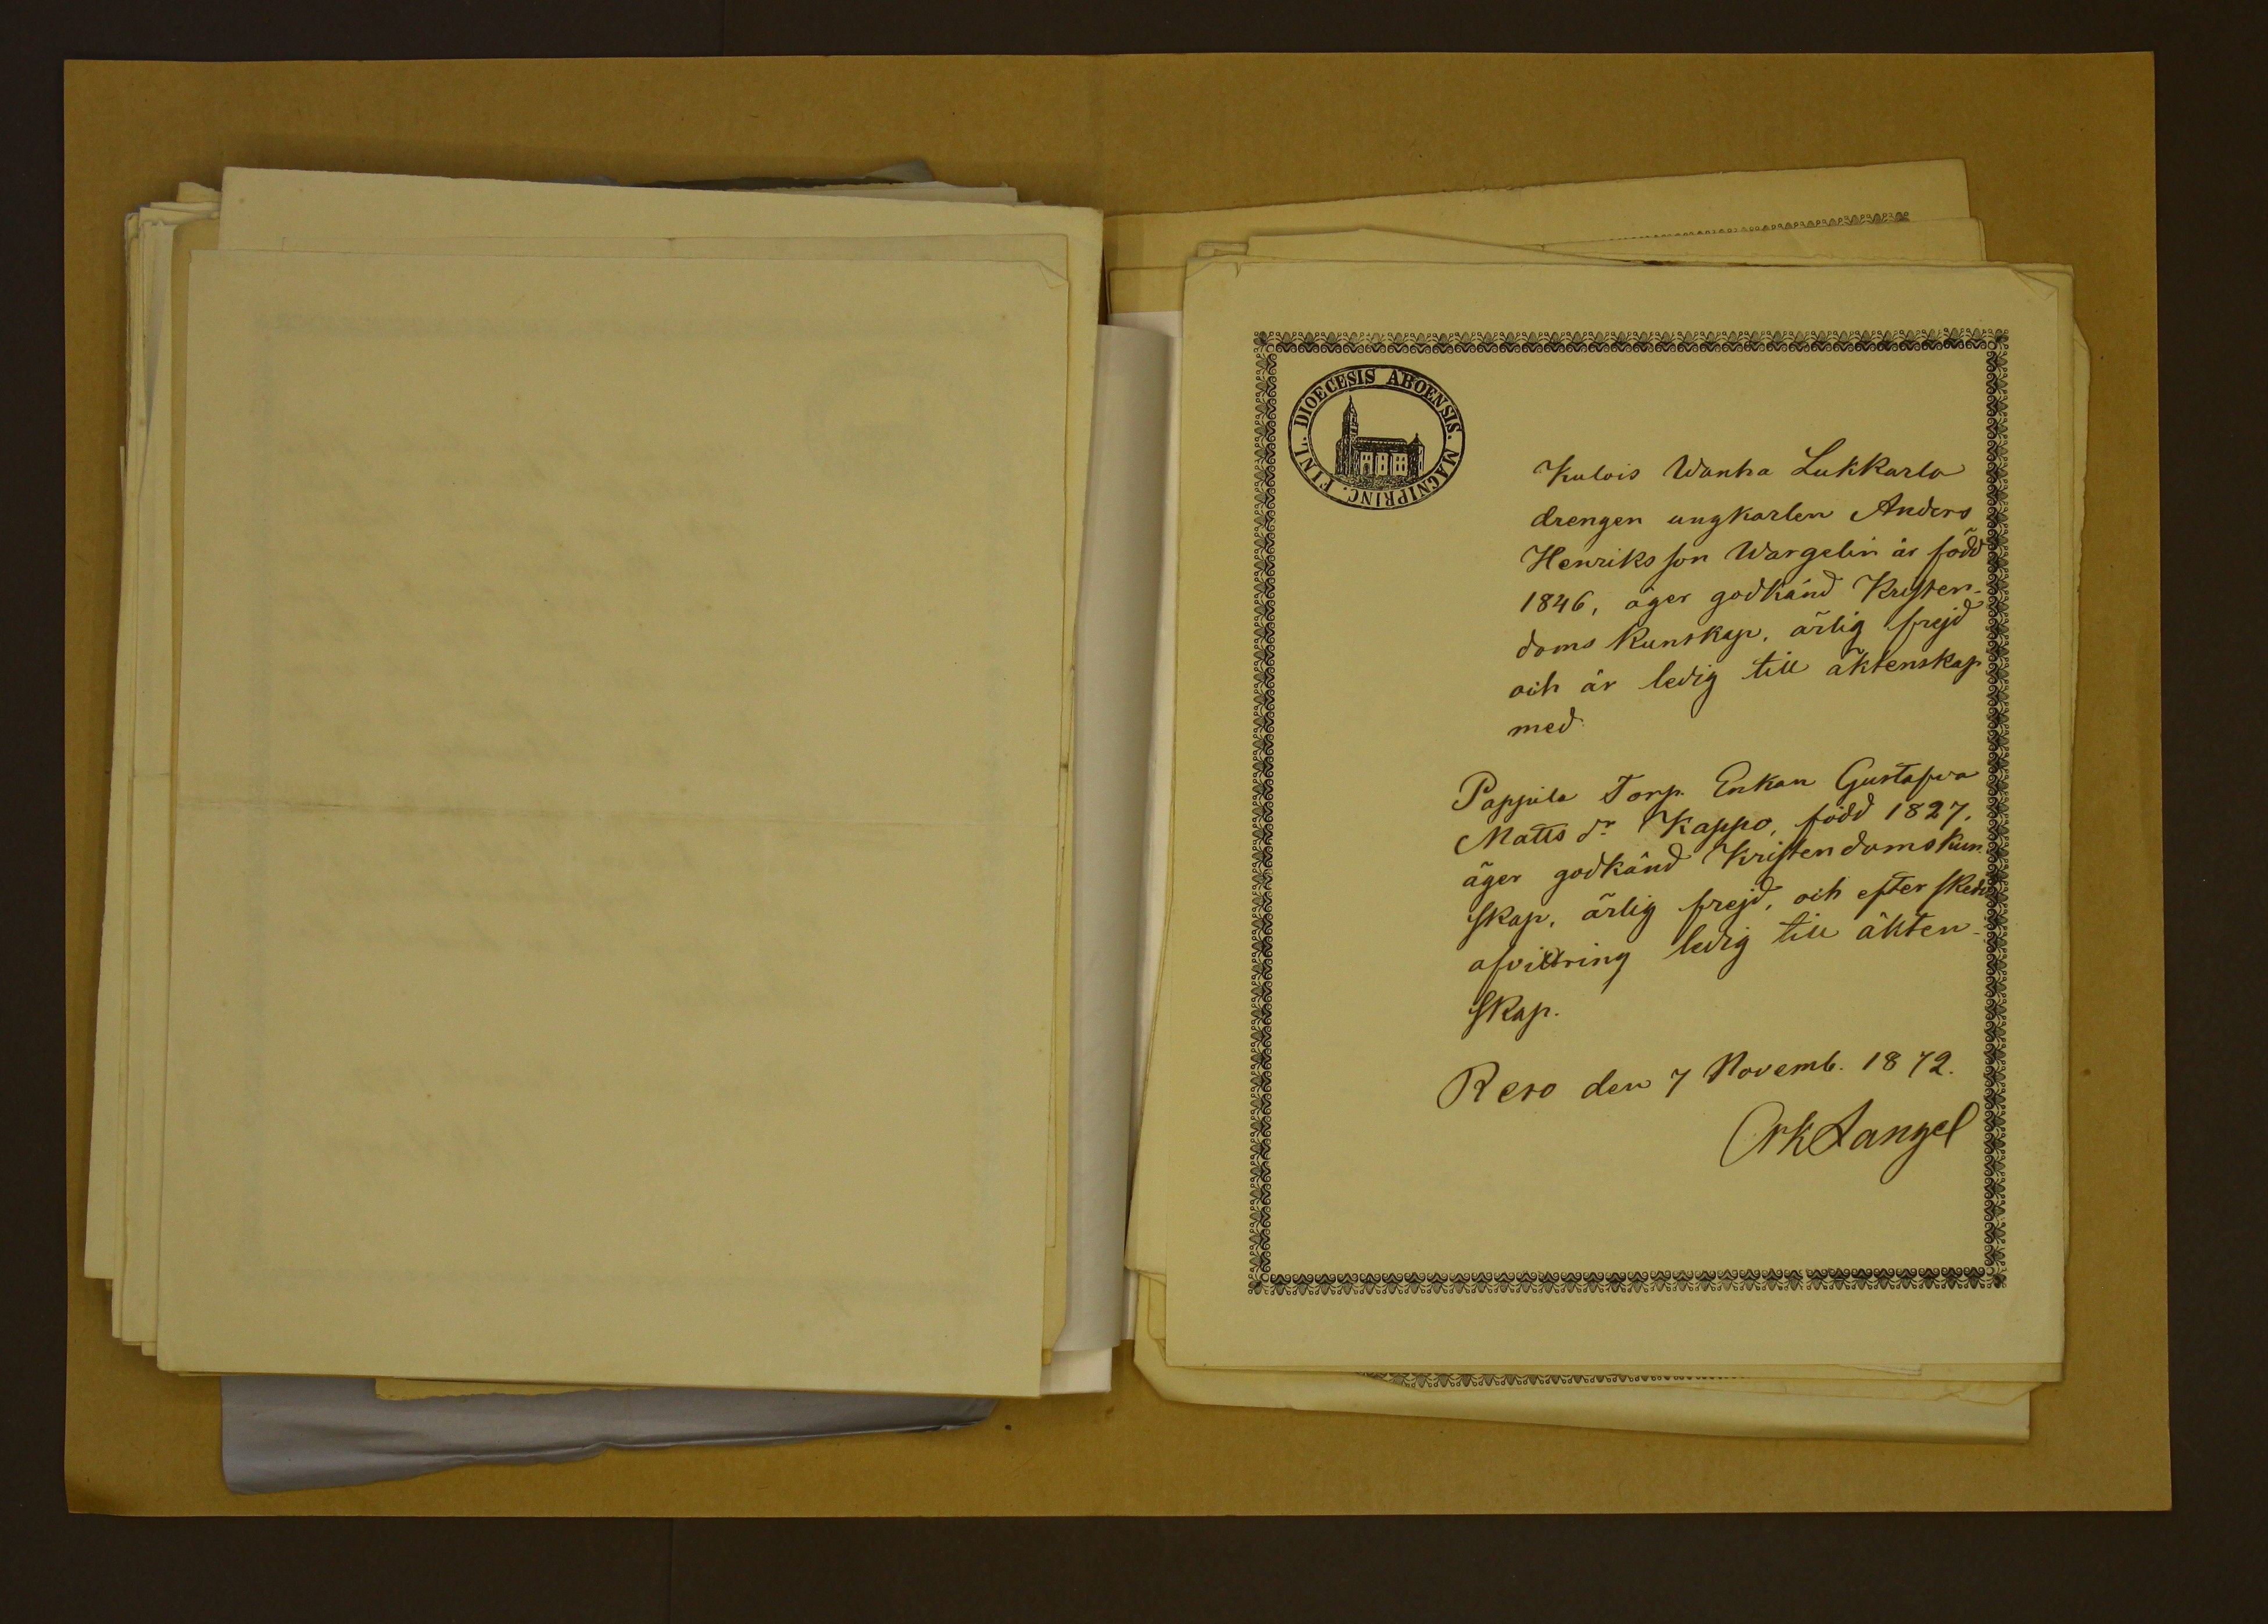 DIOECESIS ABOENSIS. MAGNIPRINC. FINL.
Kulois Wanha Lukkarla
drengen ungkarlen Anders
Henriksson Wargelin är född
1846, äger godkänd Kristen-
doms Kunskap, ärlig frejd
och är ledig till äktenskap
med
Pappila Torp. Enkan Gustafva
Matts dr Kappo, född 1827,
äger godkänd Kristendomskun-
skap, ärlig frejd, och efter skedd
afvittring ledig till äkten-
skap.
Reso den 7 Novemb. 1872.